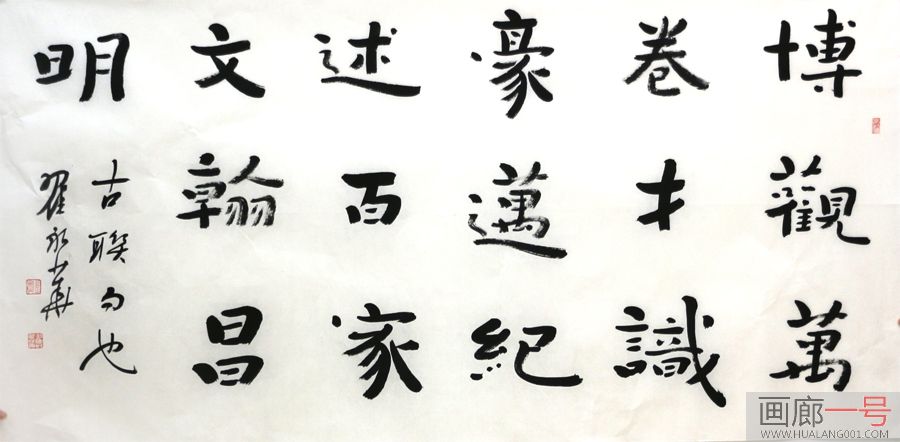 博觀萬
卷才識
豪邁紀
述百家
文翰昌
明
古聯句也
翟永華
画廊一号
WWW.HUALANG001.COM